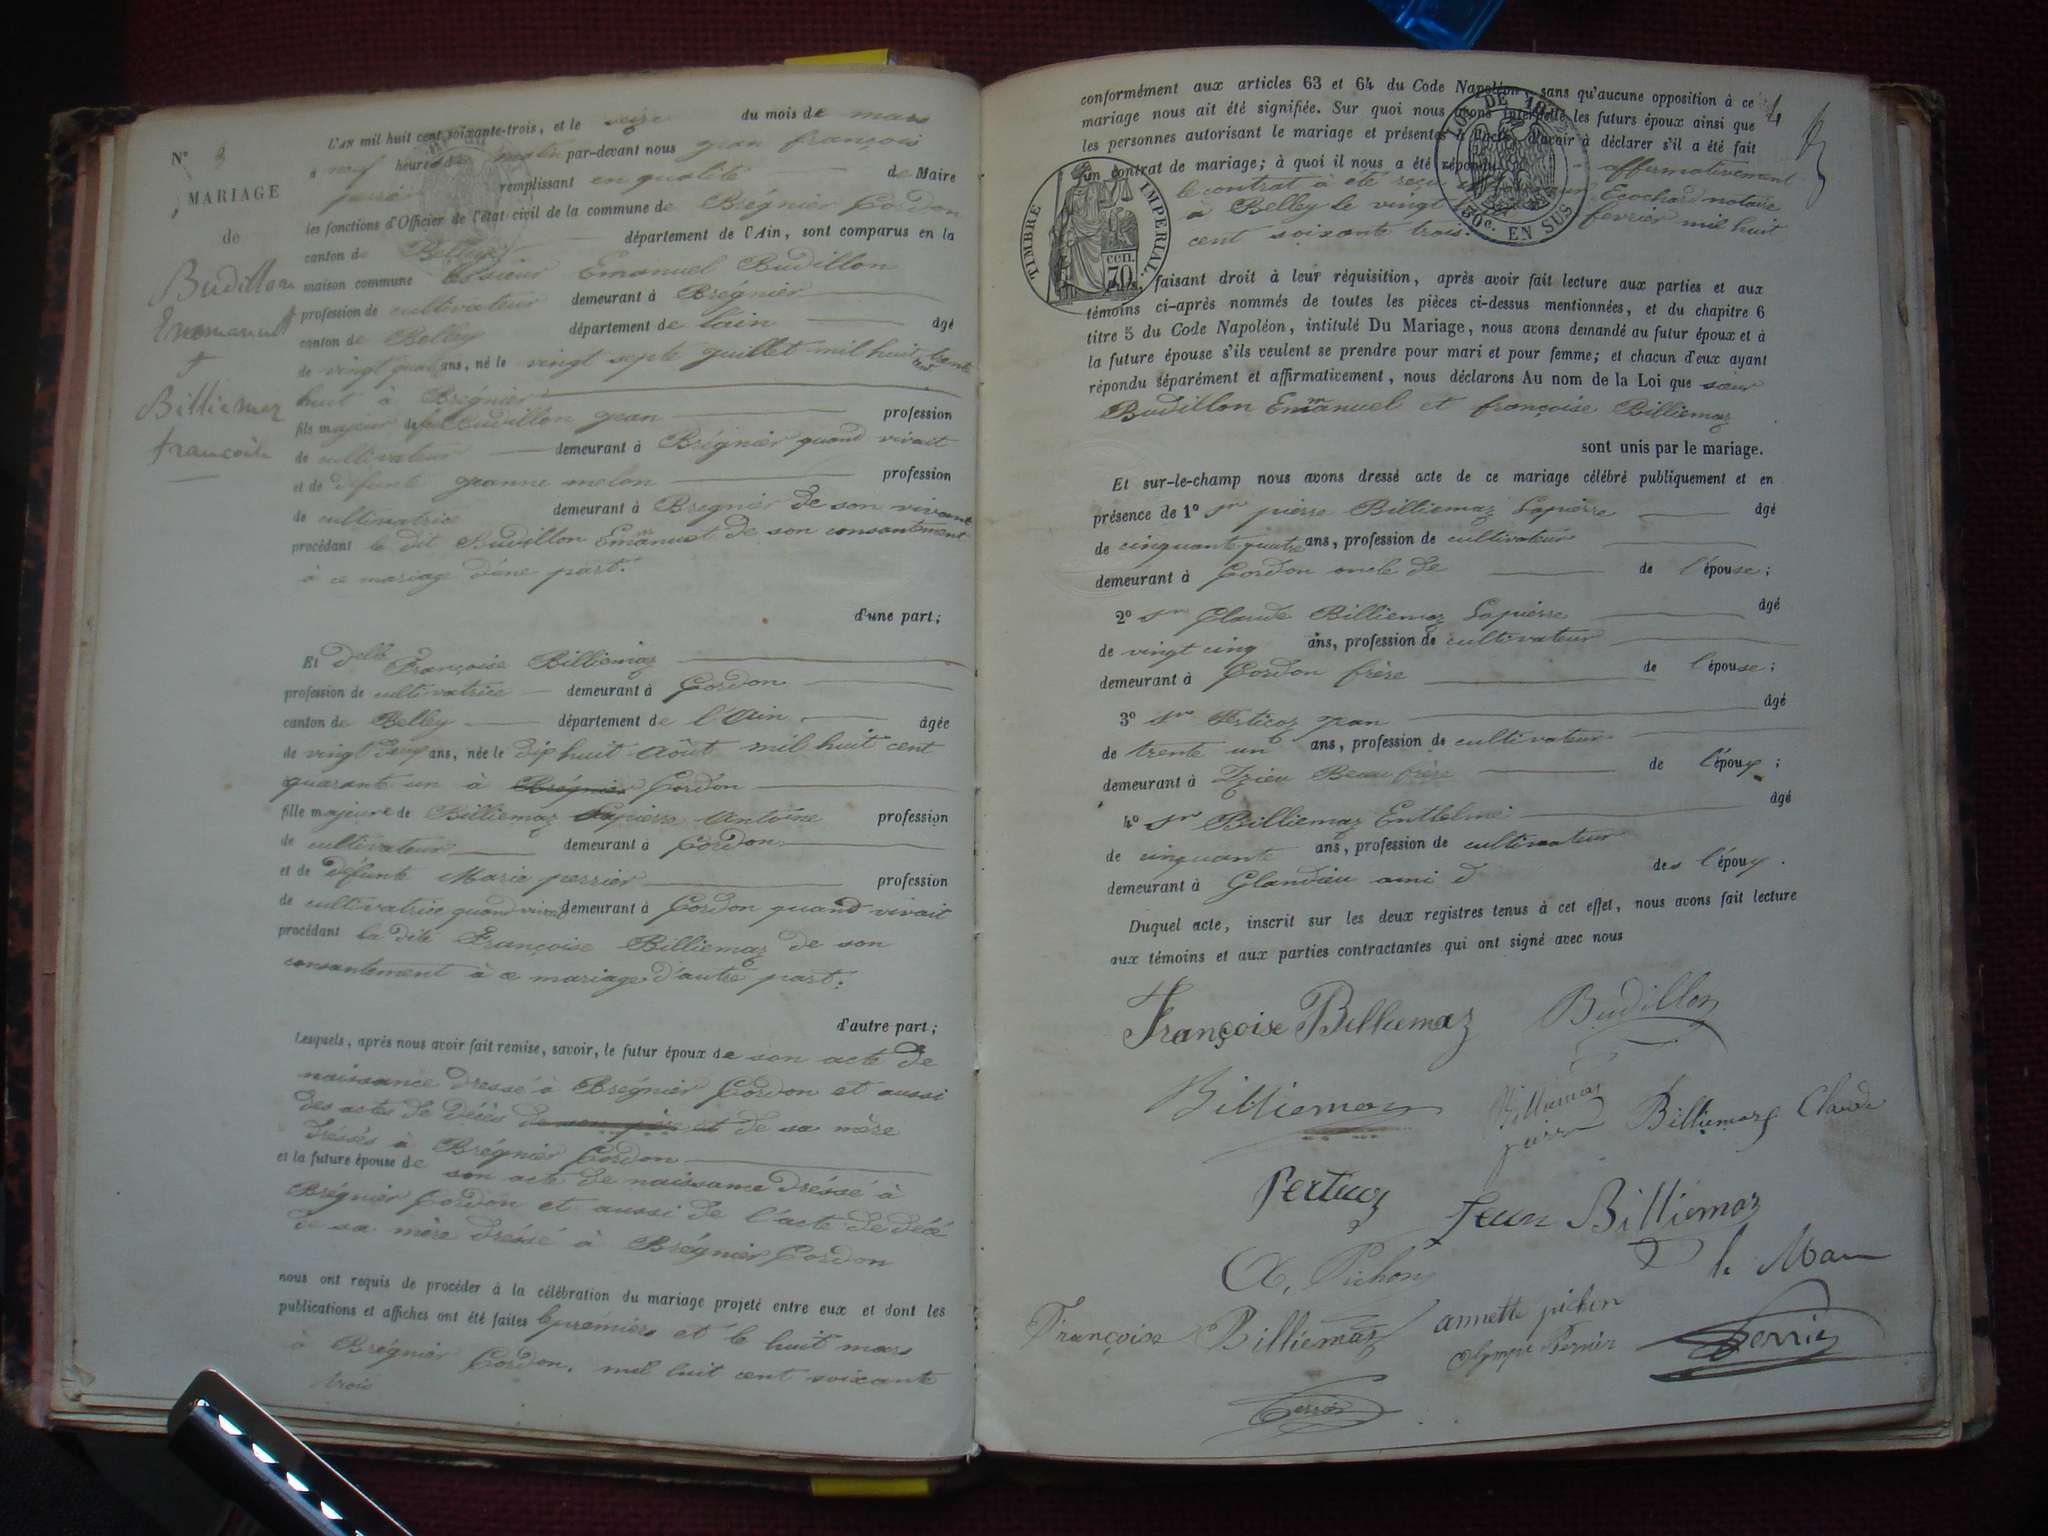 N° 3
MARIAGE
de
Budillon
Emmanuel
+
Billiemaz
françoise
L'AN mil huit cent soixante-trois, et le seize du mois de mars
à neuf heures du matin par-devant nous jean françois
perrier remplissant en qualité de Maire
les fonctions d'Officier de l'état civil de la commune de Brégnier Cordon
canton de Belley département de l'Ain, sont comparus en la
maison commune Emanuel Budillon
profession de cultivateur demeurant à Brégnier
canton de Belley département de l'ain âgé
de vingt quat ans, né le vingt septe juillet mil huit cent trente
huit à Brégnier
fils majeur de Budillon jean profession
de cultivateur demeurant à Brégnier quand vivait
et de défunte jeanne melon profession
de cultivatrice demeurant à Bregnier de son vivant
procédant le dit Budillon Emanuel de son consantement
à ce mariage d'une part.
d'une part;
Et delle Françoise Billiemaz
profession de cultivatrice demeurant à Cordon
canton de Belley département de l'Ain âgée
de vingt deux ans, née le dix huit Août mil huit cent
quarante un à Brégnier Cordon
fille majeure de Billiemaz Lapierre Antoine profession
de cultivateur demeurant à Cordon
et de défunte Marie perrier profession
de cultivatrice quand vivait demeurant à Cordon quand vivait
procédant la dite Françoise Billiemaz de son
consantement à ce mariage d'autre part.
d'autre part;
Lesquels, après nous avoir fait remise, savoir, le futur époux de son acte de
naissance dressé à Brégnier Cordon et aussi
des actes de décès de son père et de sa mère
dréssés à Brégnier Cordon
et la future épouse de son acte de naissance dréssé à
Brégnier Cordon et aussi de l'acte de décé
de sa mère dréssé à Brégnier Cordon
nous ont requis de procéder à la célébration du mariage projeté entre eux et dont les
publications et affiches ont été faites le premiers et le huit mars
à Brégnier Cordon, mil huit cent soixante
trois
4
conformément aux articles 63 et 64 du Code Napoléon, sans qu'aucune opposition à ce
mariage nous ait été signifiée. Sur quoi nous avons interpellé les futurs époux ainsi que
les personnes autorisant le mariage et présentes à l'acte, d'avoir à déclarer s'il a été fait
un contrat de mariage; à quoi il nous a été répondu affirmativement
le contrat à été reçu Ecochard notaire
à Belley le vingt fevrier mil huit
cent soixante trois.
TIMBRE IMPERIAL
CCII.
70
LOI DE
50c. EN SUS
faisant droit à leur réquisition, après avoir fait lecture aux parties et aux
témoins ci-après nommés de toutes les pièces ci-dessus mentionnées, et du chapitre 6
titre 5 du Code Napoléon, intitulé Du Mariage, nous avons demandé au futur époux et à
la future épouse s'ils veulent se prendre pour mari et pour femme; et chacun d'eux ayant
répondu séparément et affirmativement, nous déclarons Au nom de la Loi que sieur
Budillon Emanuel et françoise Billiemaz
sont unis par le mariage.
Et sur-le-champ nous avons dressé acte de ce mariage célébré publiquement et en
présence de 1° sr pierre Billiemaz Lapierre âgé
de cinquante quatre ans, profession de cultivateur
demeurant à Cordon oncle de de l'épouse;
2° sr Claude Billiemaz Lapierre âgé
de vingt cinq ans, profession de cultivateur
demeurant à Cordon frère de l'épouse;
3° sr Perticoz jean âgé
de trente un ans, profession de cultivateur
demeurant à Izieu Beau frère de l'époux;
4° sr Billiemaz Enthelme âgé
de cinquante ans, profession de cultivateur
demeurant à Glandieu ami d des l'époux.
Duquel acte, inscrit sur les deux registres tenus à cet effet, nous avons fait lecture
aux témoins et aux parties contractantes qui ont signé avec nous
Françoise Billiemaz Budillon
Billiemaz Billiemaz pierre Billiemaz Claude
Perticoz Jean Billiemaz
A. Pichon le Maire
Françoise Billiemaz annette pichon
Olympe Perrier Perrier
Perrier